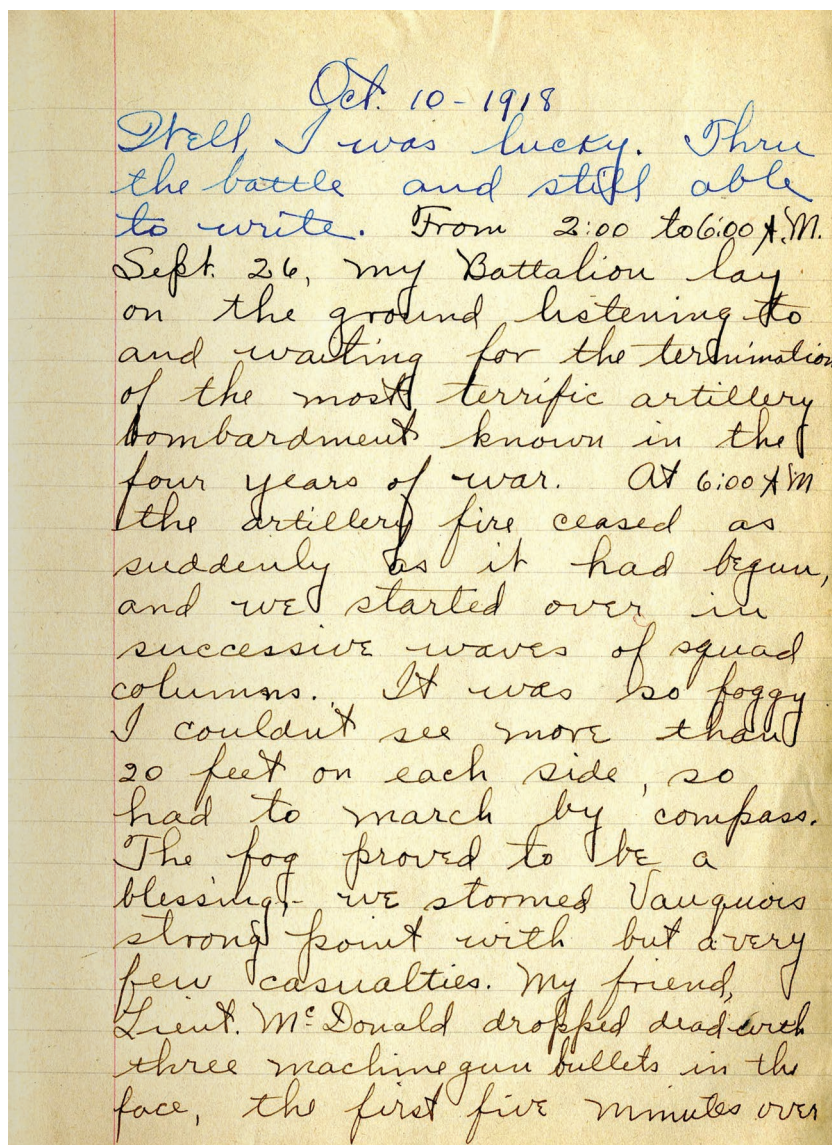 Oct. 10 - 1918
Well, I was lucky. Thru
the battle and still able
to write. From 2:00 to 6:00 A.M.
Sept. 26, my Battalion lay
on the ground listening to
and waiting for the termination
of the most terrific artillery
bombardment known in the
four years of war. At 6:00 AM
the artillery fire ceased as
suddenly as it had begun,
and we started over in
successive waves of squad
columns. It was so foggy
I couldn't see more than
20 feet on each side, so
had to march by compass.
The fog proved to be a
blessing,- we stormed Vauquois
strong point with but a very
few casualties. My friend,
Lieut. McDonald dropped dead with
three machine gun bullets in the
face, the first five minutes over